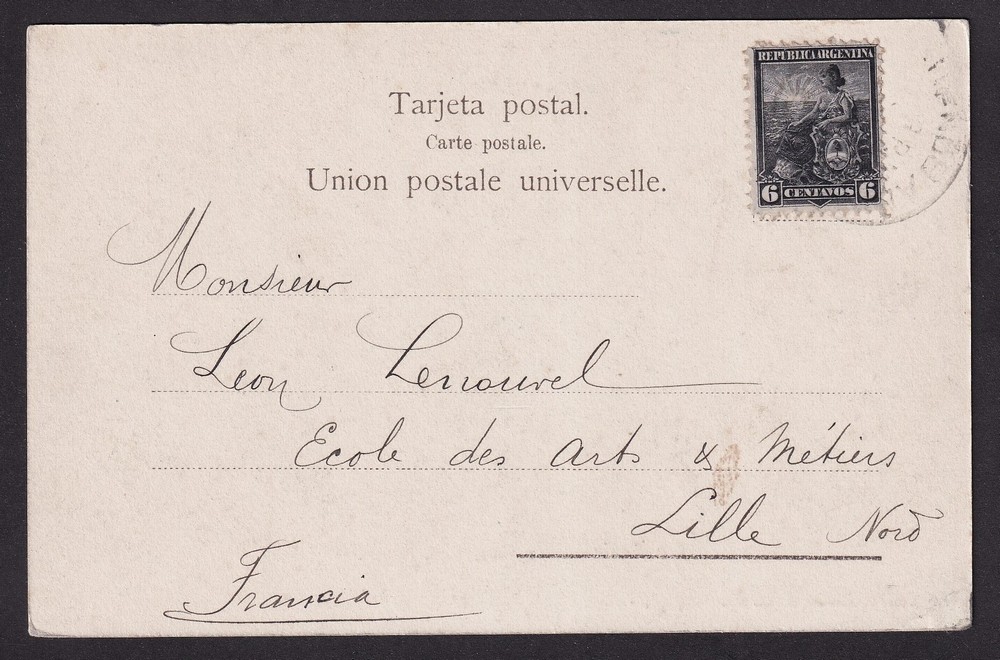 Tarjeta postal.
Carte postale.
Union postale universelle.
REPUBLICA ARGENTINA
6 CENTAVOS 6
Monsieur
Leon Lenouvel
Ecole des Arts & Métiers
Lille Nord
Francia